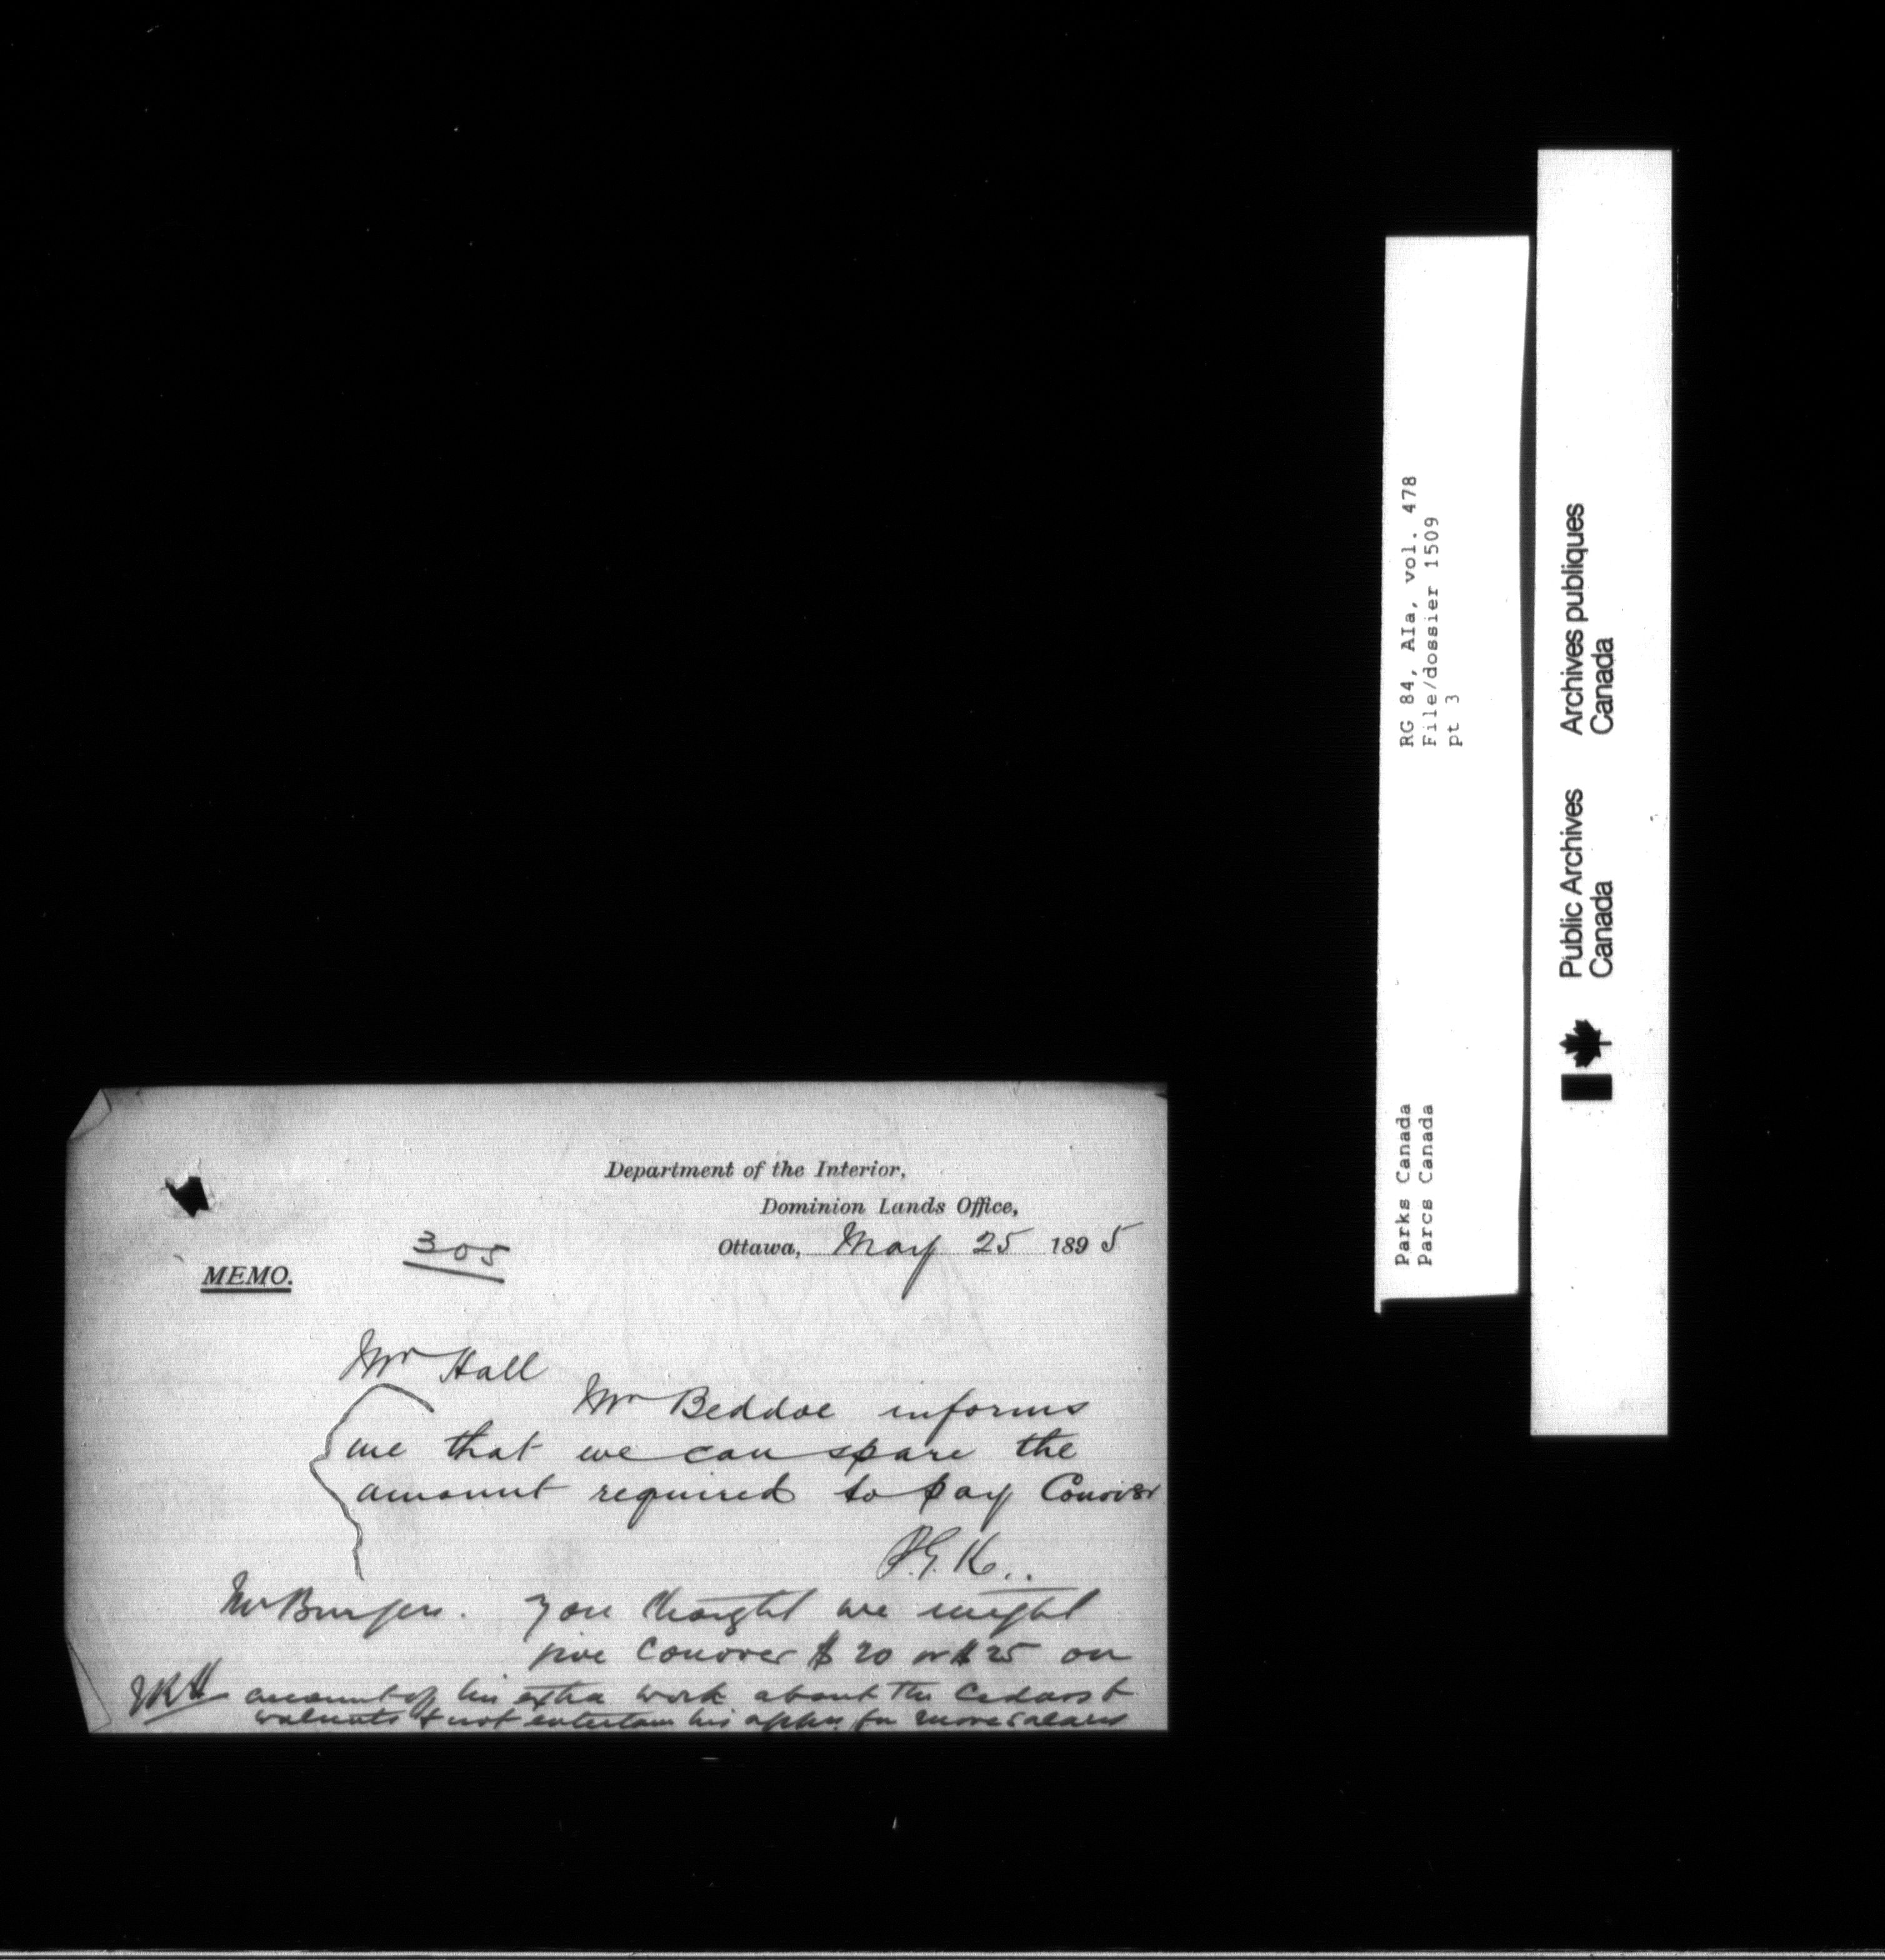 Department of the Interior,
Dominion Lands Office,
Ottawa, May 25 1895
305
MEMO.
Mr Hall
Mr Beddoe informs
me that we can spare the
amount required to pay Conover
P.G.K..
Mr Burgess. You thought we might
give Conover $20 or $25 on
JRH account of his extra work about the Cedars &
walnuts & not entertain his appln for more salary
RG 84, AIa, vol. 478
File/dossier 1509
pt 3
Parks Canada
Parcs Canada
Public Archives
Canada
Archives publiques
Canada